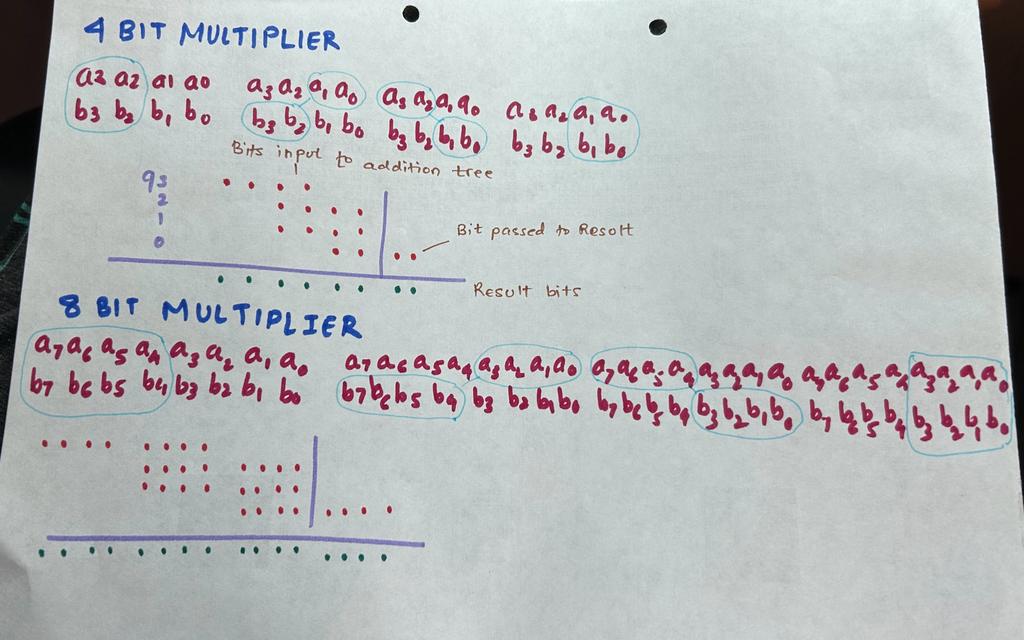 4 BIT MULTIPLIER
a3 a2 a1 a0 a3 a2 a1 a0 a3 a2 a1 a0 a3 a2 a1 a0
b3 b2 b1 b0 b3 b2 b1 b0 b3 b2 b1 b0 b3 b2 b1 b0
Bits input to addition tree
q3
2
1
0
Bit passed to Result
Result bits
8 BIT MULTIPLIER
a7 a6 a5 a4 a3 a2 a1 a0 a7 a6 a5 a4 a3 a2 a1 a0 a7 a6 a5 a4 a3 a2 a1 a0 a7 a6 a5 a4 a3 a2 a1 a0
b7 b6 b5 b4 b3 b2 b1 b0 b7 b6 b5 b4 b3 b2 b1 b0 b7 b6 b5 b4 b3 b2 b1 b0 b7 b6 b5 b4 b3 b2 b1 b0